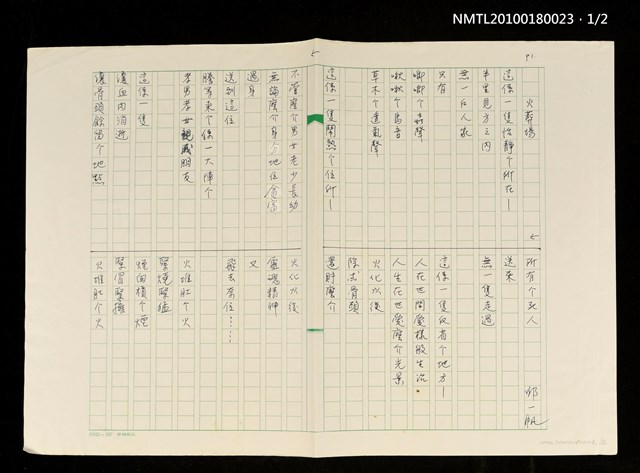 NMTL20100180023・1/2
P1
火葬場
邱一帆
這係一隻恬靜个所在—
半里見方之內
無一戶人家
只有
唧唧个蟲聲
啾啾个鳥音
草木个透氣聲
這係一隻鬧熱个位所—
不管麼介男女老少長幼
無論麼介身分地位貧富
過身
送到這位
等來个係一大陣个
孝男孝女親戚朋友
這係一隻
血肉消逝
骨頭餘留个地點
所有个死人
送來
無一隻走過
這係一隻仅有个地方—
人在世間愛樣般生活
人生在世愛麼介光景
火化以後
除去骨頭
還賸麼介
火化以後
靈魂精神
又
飛去奈位……
火堆肚个火
緊燒緊猛
煙囪裡个煙
緊冒緊
火堆肚个火